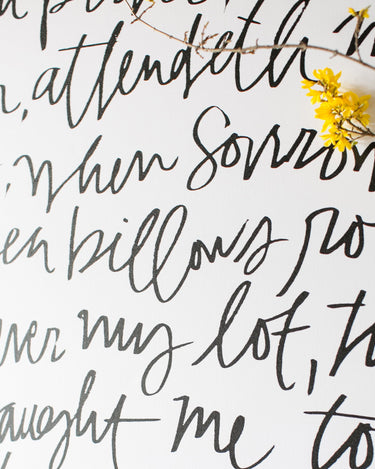 r, attendeth m
, when Sorrow
ea billows ro
ver my lot, th
aught me to